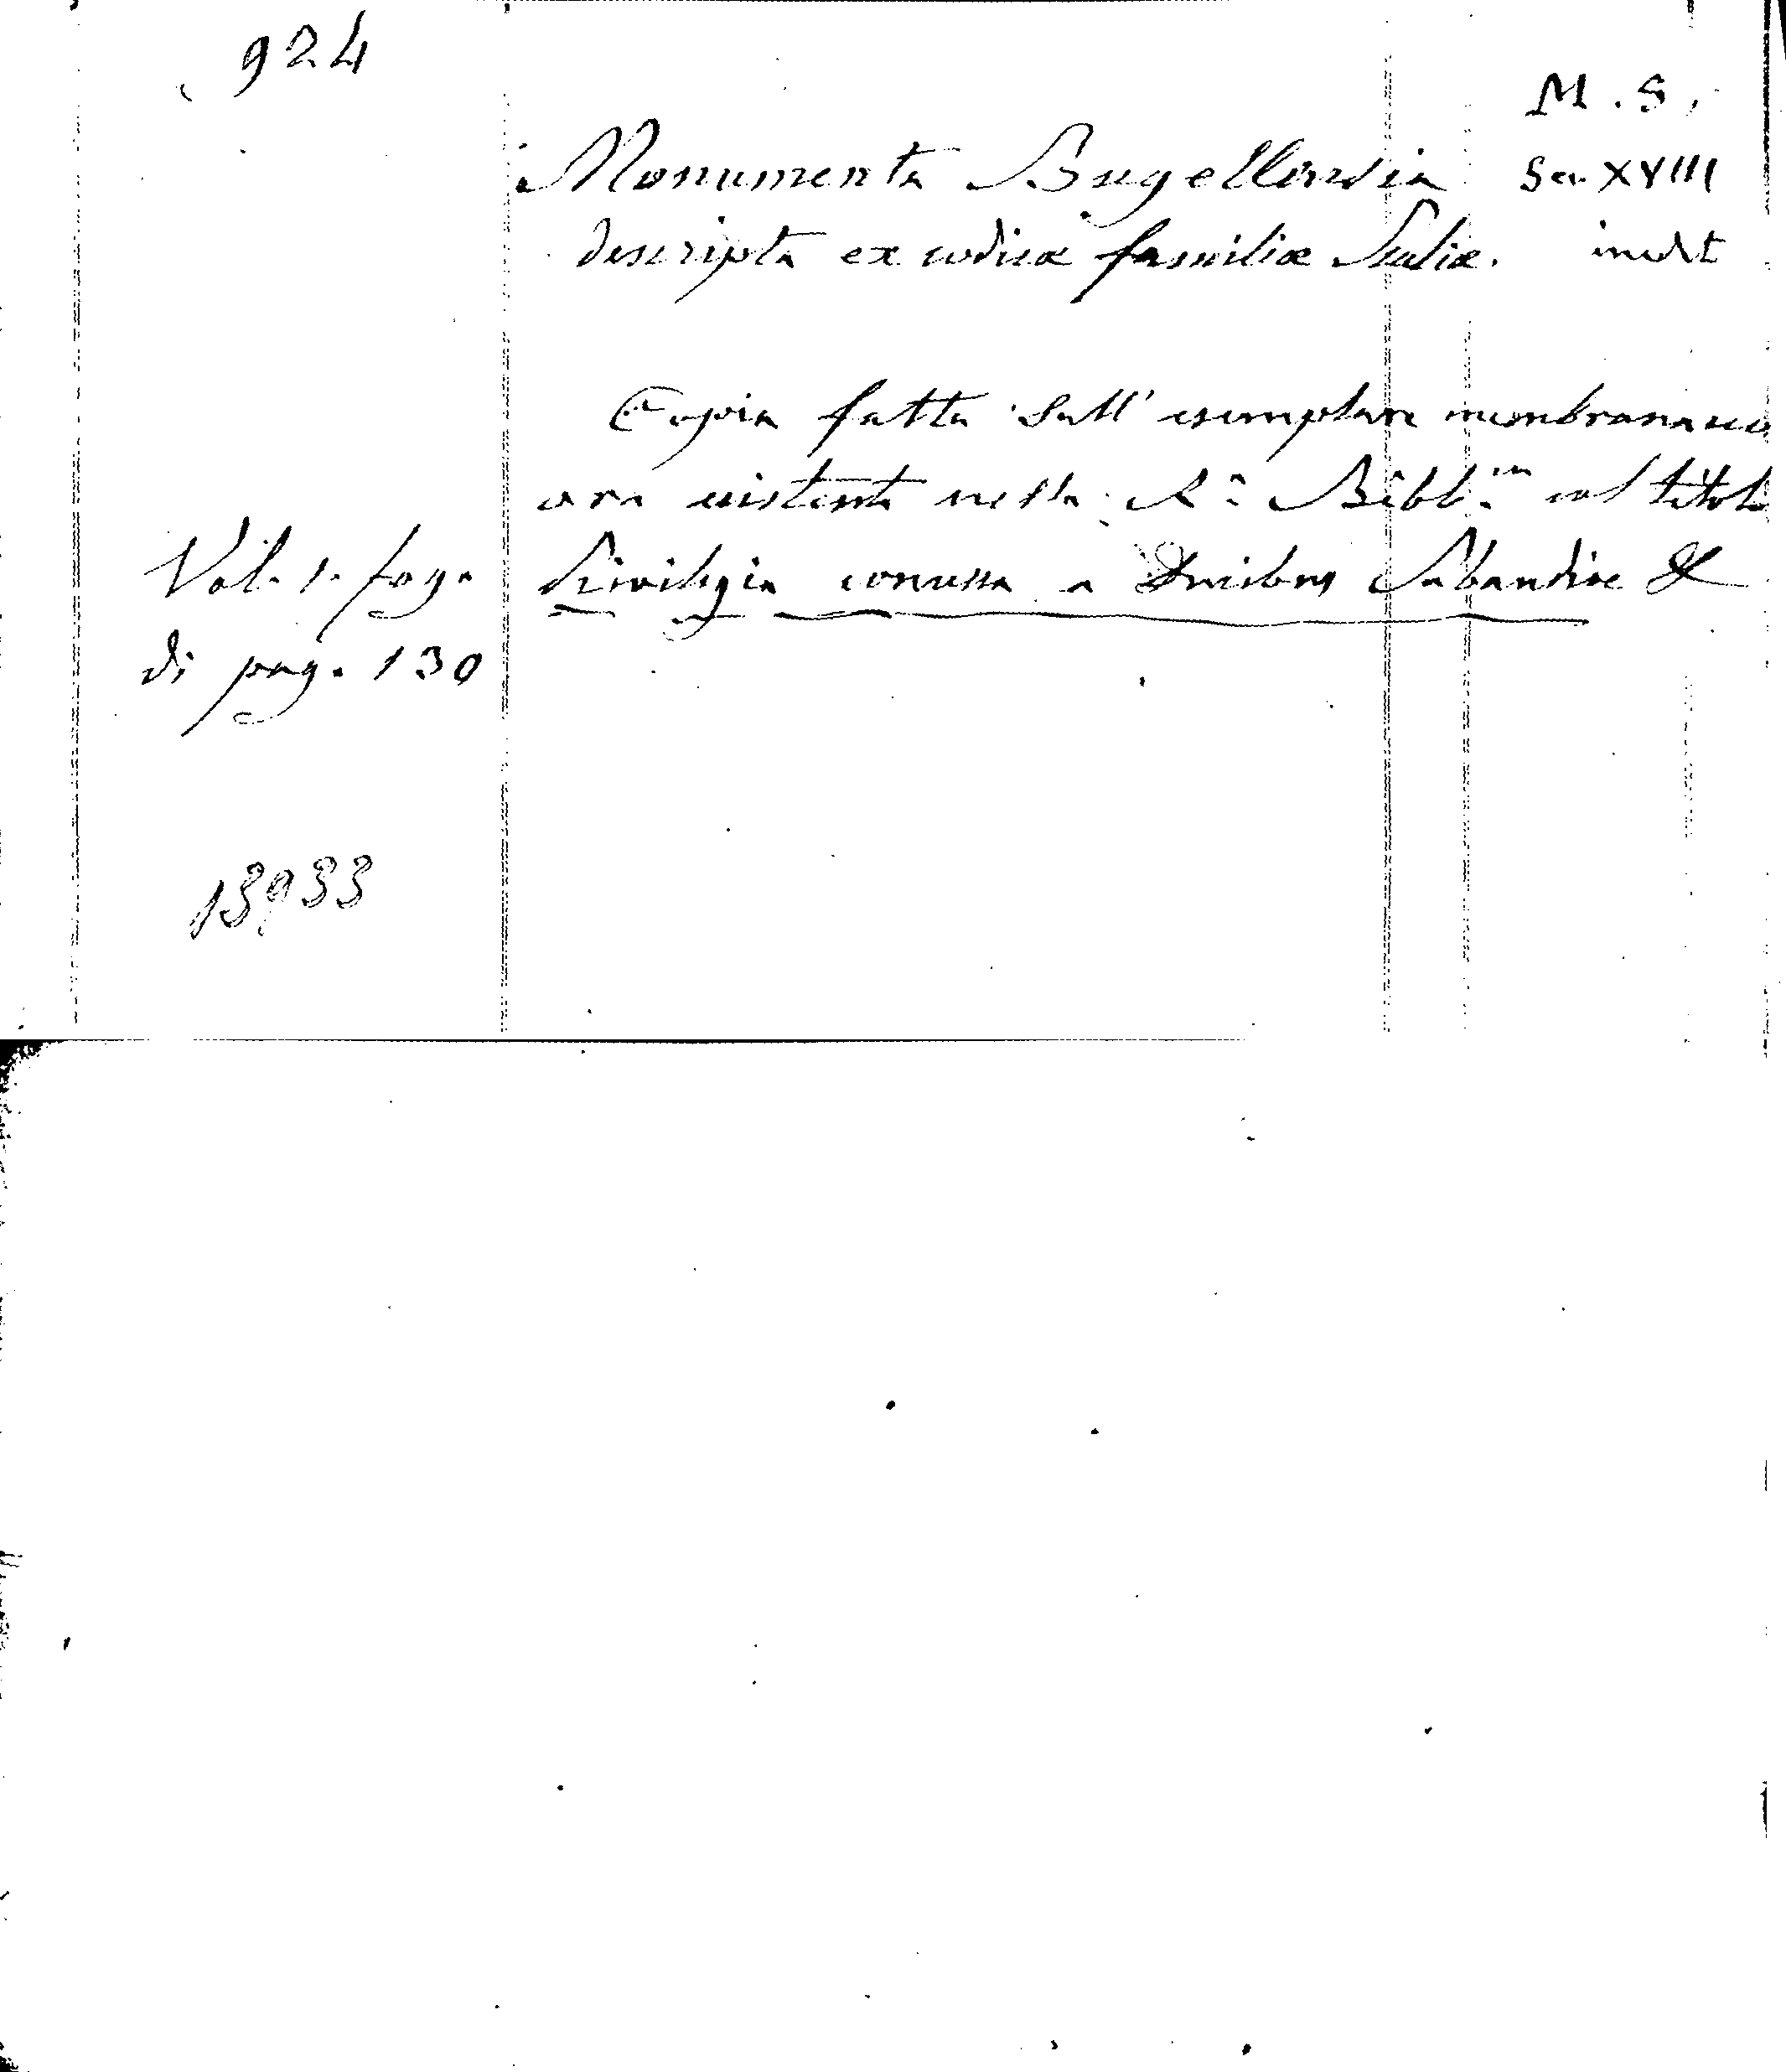 924
M. S.
Monumenta Bugellensia Sec. XVIII
descripta ex codice familiæ Scaliæ. inedt
Copia fatta sull' esemplare membranaceo
ora esistente nella R.ª Bibl.ca col titolo
Vol. 1. fog. Privilegia concessa a Ducibus Sabaudiæ &
di pag. 130
13933